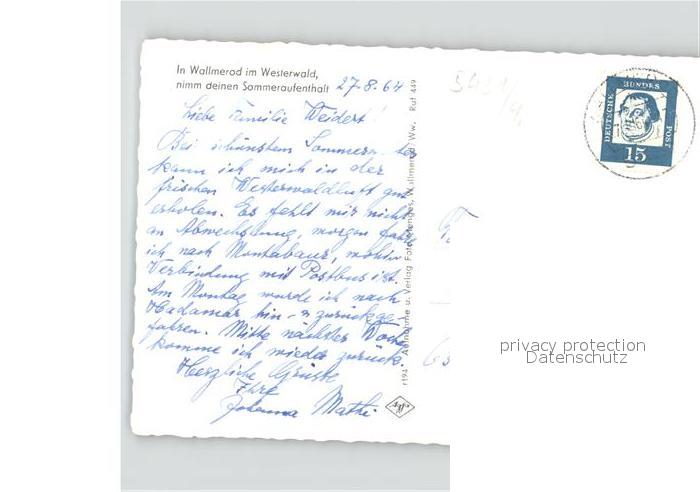 In Wallmerod im Westerwald,
nimm deinen Sommeraufenthalt 27.8.64
Liebe Familie Weidert!
Bei schönstem Sommerw
kann ich mich in der
frischen Westerwaldluft gut
erholen. Es fehlt mir nicht
an Abwechslung, morgen fahre
ich nach Montabaur, wohin
Verbindung mit Postbus ist.
Am Montag wurde ich nach
Hadamar hin- u zurückge-
fahren. Mitte nächster Woche
komme ich wieder zurück.
Herzliche Grüße
Ihre
Johanna Mathi
r194 Aufnahme u. Verlag Foto Menges, Wallmerod/Ww. Ruf 449
DEUTSCHE
BUNDES
POST
15
privacy protection
Datenschutz